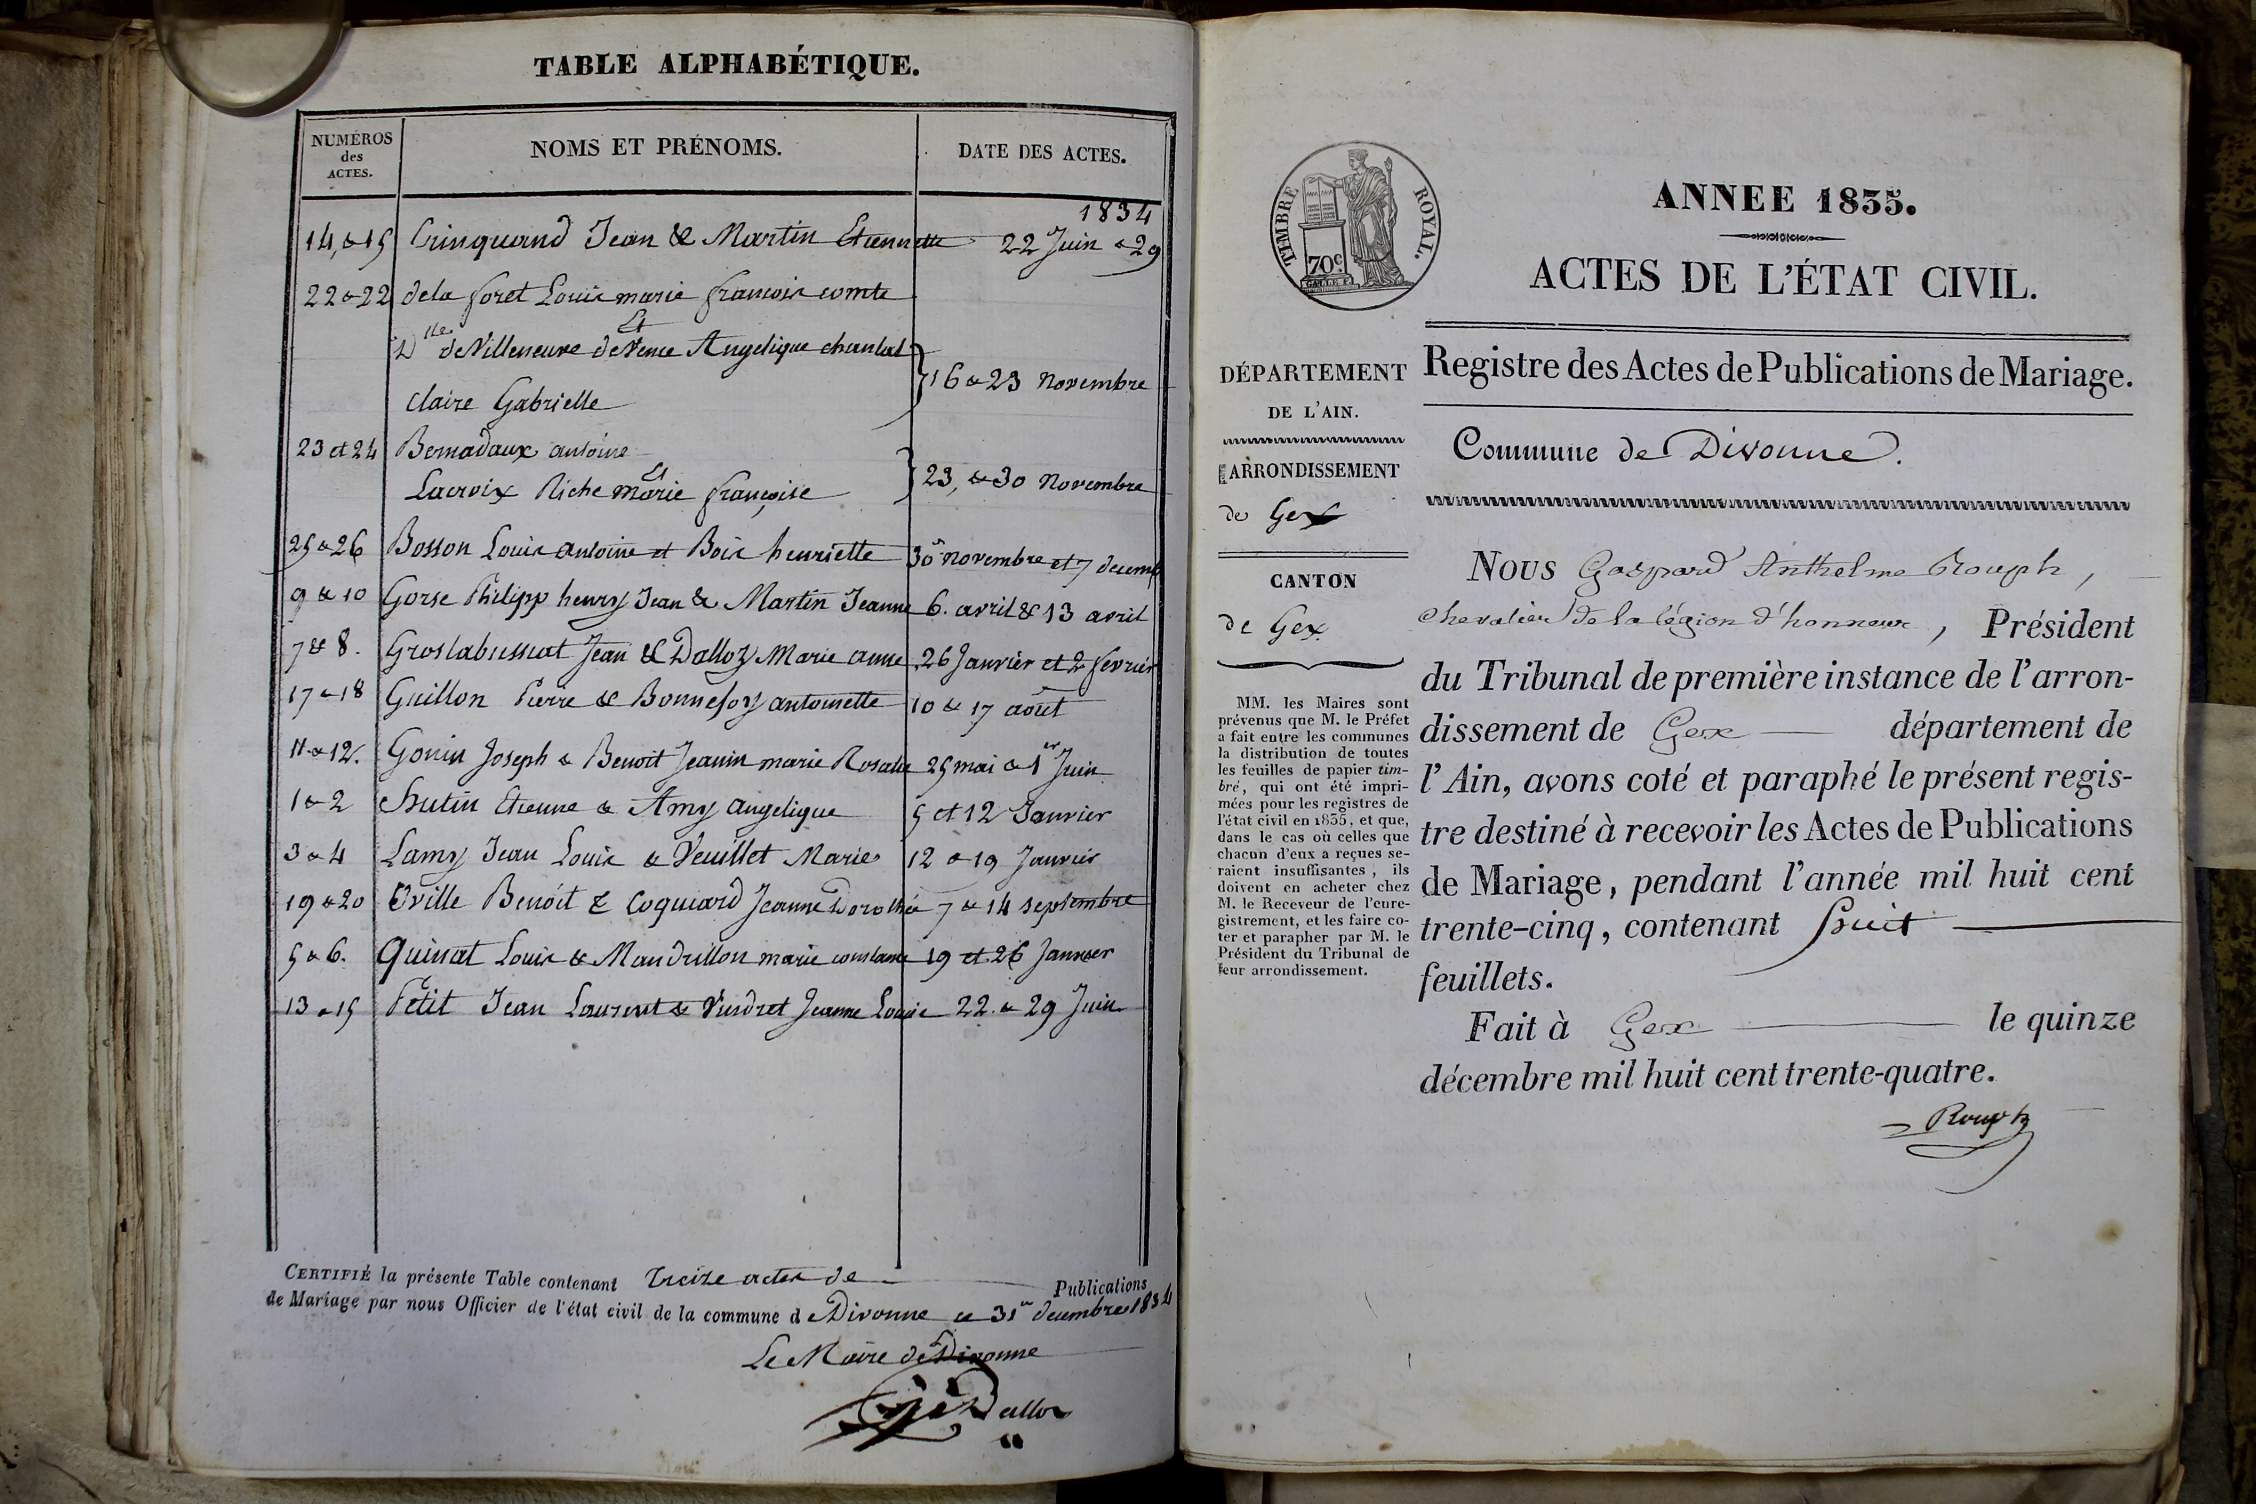 TABLE ALPHABÉTIQUE.
NUMÉROS
des
ACTES.
NOMS ET PRÉNOMS.
DATE DES ACTES.
1834
14, & 15 Crinquand Jean & Martin Etiennette 22 Juin & 29
22 & 22 de la foret Louis marie françois comte
Et
Dlle de Villeneuve de Vence Angelique chantal
Claire Gabrielle 16 & 23 novembre
23 et 24 Bernadaux antoine
Et
Lacroix Riche marie françoise 23, & 30 novembre
25 & 26 Bosson Louis antoine et Bois henriette 30 novembre et 7 decemb
9 & 10 Gorse Philipp henry Jean & Martin Jeanne 6. avril & 13 avril
7 & 8. Groslabussiat Jean & Dalloz Marie anne 26 Janvier et 2 fevrier
17 & 18 Guillon Pierre & Bonnefoy antoinette 10 & 17 août
11 & 12. Gonin Joseph & Benoit Jeanin marie Rosalie 25 mai & 1er Juin
1 & 2 hutin Etienne & Amy angelique 5 et 12 Janvier
3 & 4 Lamy Jean Louis & Veuillet Marie 12 & 19 Janvier
19 & 20 Oville Benoit & Coquiard Jeanne Dorothée 7 & 14 septembre
5 & 6. Quinat Louis & Mandrillon marie constance 19 et 26 Janvier
13 & 15 Petit Jean Laurent & Vuidret Jeanne Louise 22. & 29 Juin
CERTIFIÉ la présente Table contenant Treize actes de Publications
de Mariage par nous Officier de l'état civil de la commune d Divonne ce 31 decembre 1834
Le Maire de Divonne
Dalloz
TIMBRE ROYAL.
70c.
ANNEE 1835.
ACTES DE L'ÉTAT CIVIL.
Registre des Actes de Publications de Mariage.
Commune de Divonne.
DÉPARTEMENT
DE L'AIN.
ARRONDISSEMENT
de Gex
CANTON
de Gex
MM. les Maires sont
prévenus que M. le Préfet
a fait entre les communes
la distribution de toutes
les feuilles de papier tim-
bré, qui ont été impri-
mées pour les registres de
l'état civil en 1835, et que,
dans le cas où celles que
chacun d'eux a reçues se-
raient insuffisantes, ils
doivent en acheter chez
M. le Receveur de l'enre-
gistrement, et les faire co-
ter et parapher par M. le
Président du Tribunal de
leur arrondissement.
Nous Gaspard Anthelme Rouph,
chevalier de la légion d'honneur, Président
du Tribunal de première instance de l'arron-
dissement de Gex département de
l'Ain, avons coté et paraphé le présent regis-
tre destiné à recevoir les Actes de Publications
de Mariage, pendant l'année mil huit cent
trente-cinq, contenant huit
feuillets.
Fait à Gex le quinze
décembre mil huit cent trente-quatre.
Rouph